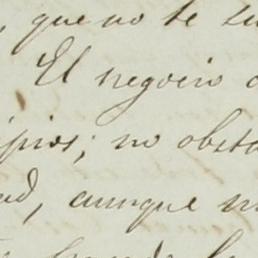 , que no te
El negocio
ipios; no obsta
ad, aunque